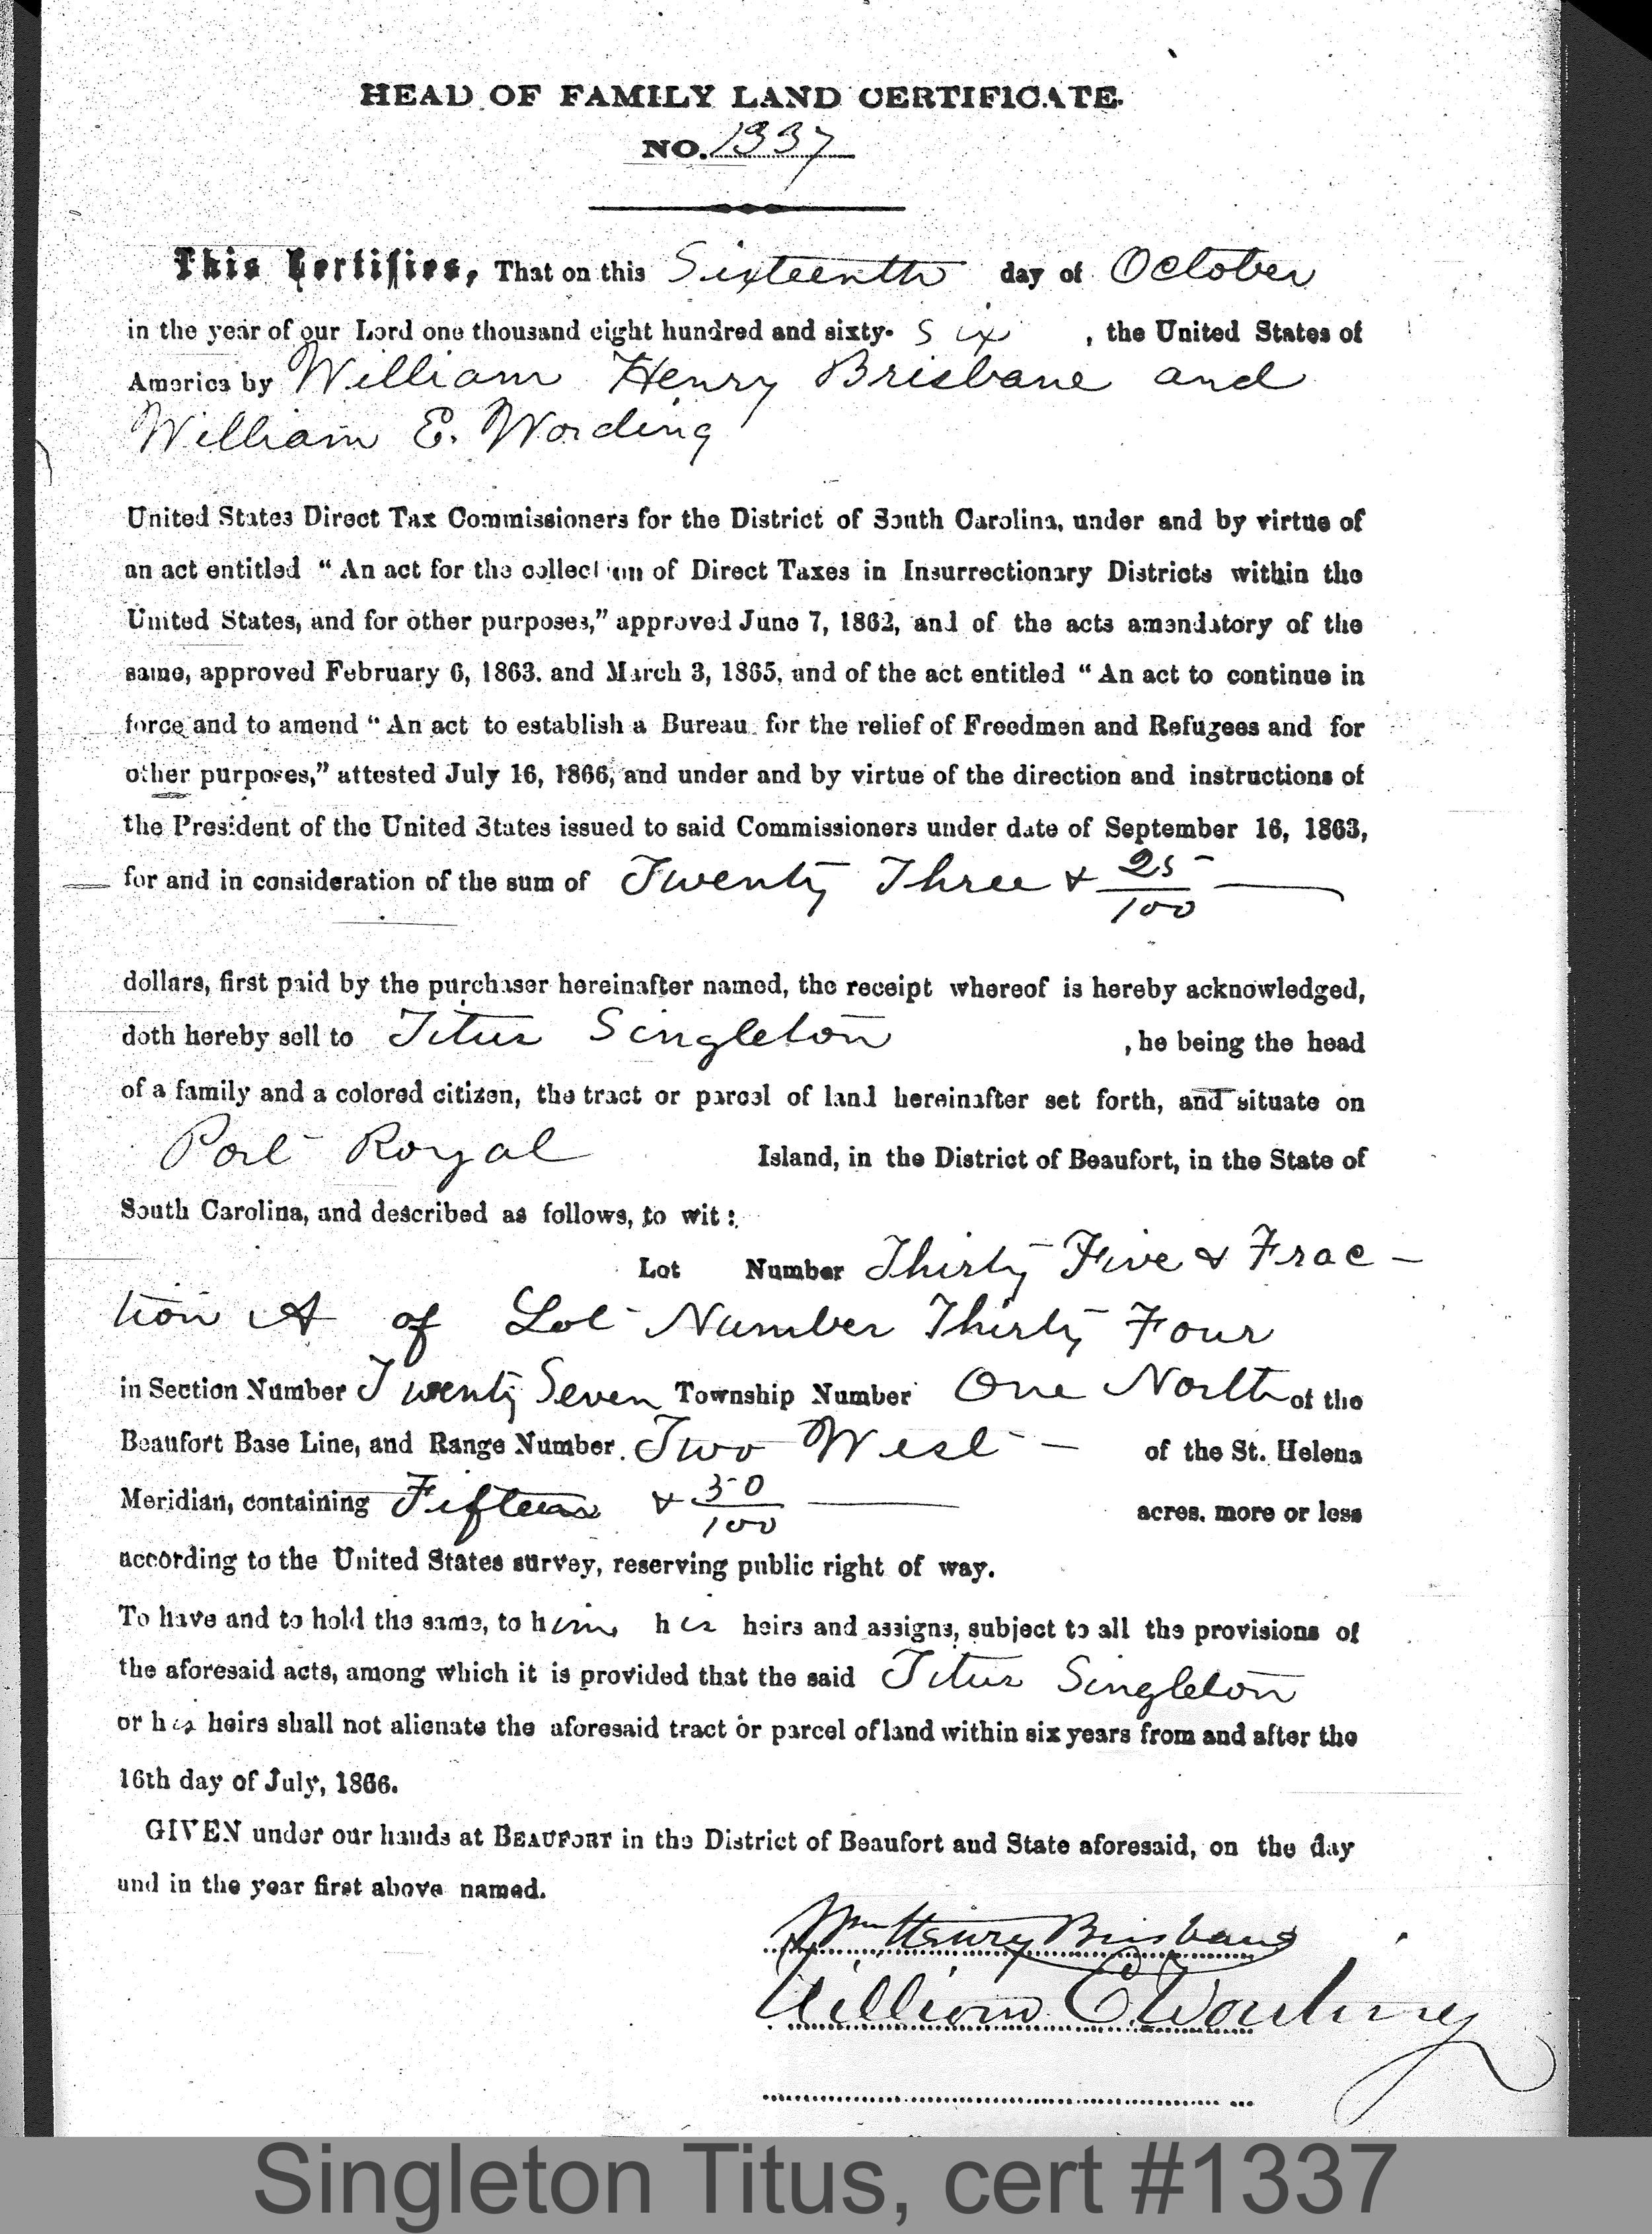 HEAD OF FAMILY LAND CERTIFICATE.
NO. 1337
This Certifies, That on this Sixteenth day of October
in the year of our Lord one thousand eight hundred and sixty- six , the United States of
America by William Henry Brisbane and
William E. Wording
United States Direct Tax Commissioners for the District of South Carolina, under and by virtue of
an act entitled “ An act for the collection of Direct Taxes in Insurrectionary Districts within the
United States, and for other purposes,” approved June 7, 1862, and of the acts amendatory of the
same, approved February 6, 1863. and March 3, 1865, and of the act entitled “ An act to continue in
force and to amend “ An act to establish a Bureau for the relief of Freedmen and Refugees and for
other purposes,” attested July 16, 1866, and under and by virtue of the direction and instructions of
the President of the United States issued to said Commissioners under date of September 16, 1863,
for and in consideration of the sum of Twenty Three & 25/100
dollars, first paid by the purchaser hereinafter named, the receipt whereof is hereby acknowledged,
doth hereby sell to Titus Singleton , he being the head
of a family and a colored citizen, the tract or parcel of land hereinafter set forth, and situate on
Port Royal Island, in the District of Beaufort, in the State of
South Carolina, and described as follows, to wit :
Lot Number Thirty Five & Frac-
tion A of Lot Number Thirty Four
in Section Number Twenty Seven Township Number One North of the
Beaufort Base Line, and Range Number Two West — of the St. Helena
Meridian, containing Fifteen & 50/100 acres, more or less
according to the United States survey, reserving public right of way.
To have and to hold the same, to him, his heirs and assigns, subject to all the provisions of
the aforesaid acts, among which it is provided that the said Titus Singleton
or his heirs shall not alienate the aforesaid tract or parcel of land within six years from and after the
16th day of July, 1866.
GIVEN under our hands at BEAUFORT in the District of Beaufort and State aforesaid, on the day
and in the year first above named.
Wm Henry Brisbane
William E. Wording
Singleton Titus, cert #1337